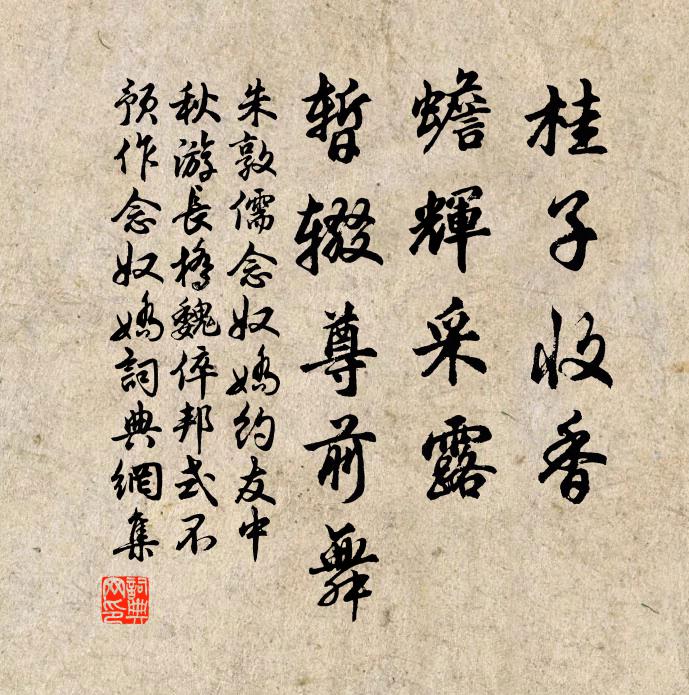 桂子收香
蟾輝采露
暫辍尊前舞
朱敦儒念奴嬌約友中
秋游長橋魏倅邦式不
預作念奴嬌詞典網集
詞典網印